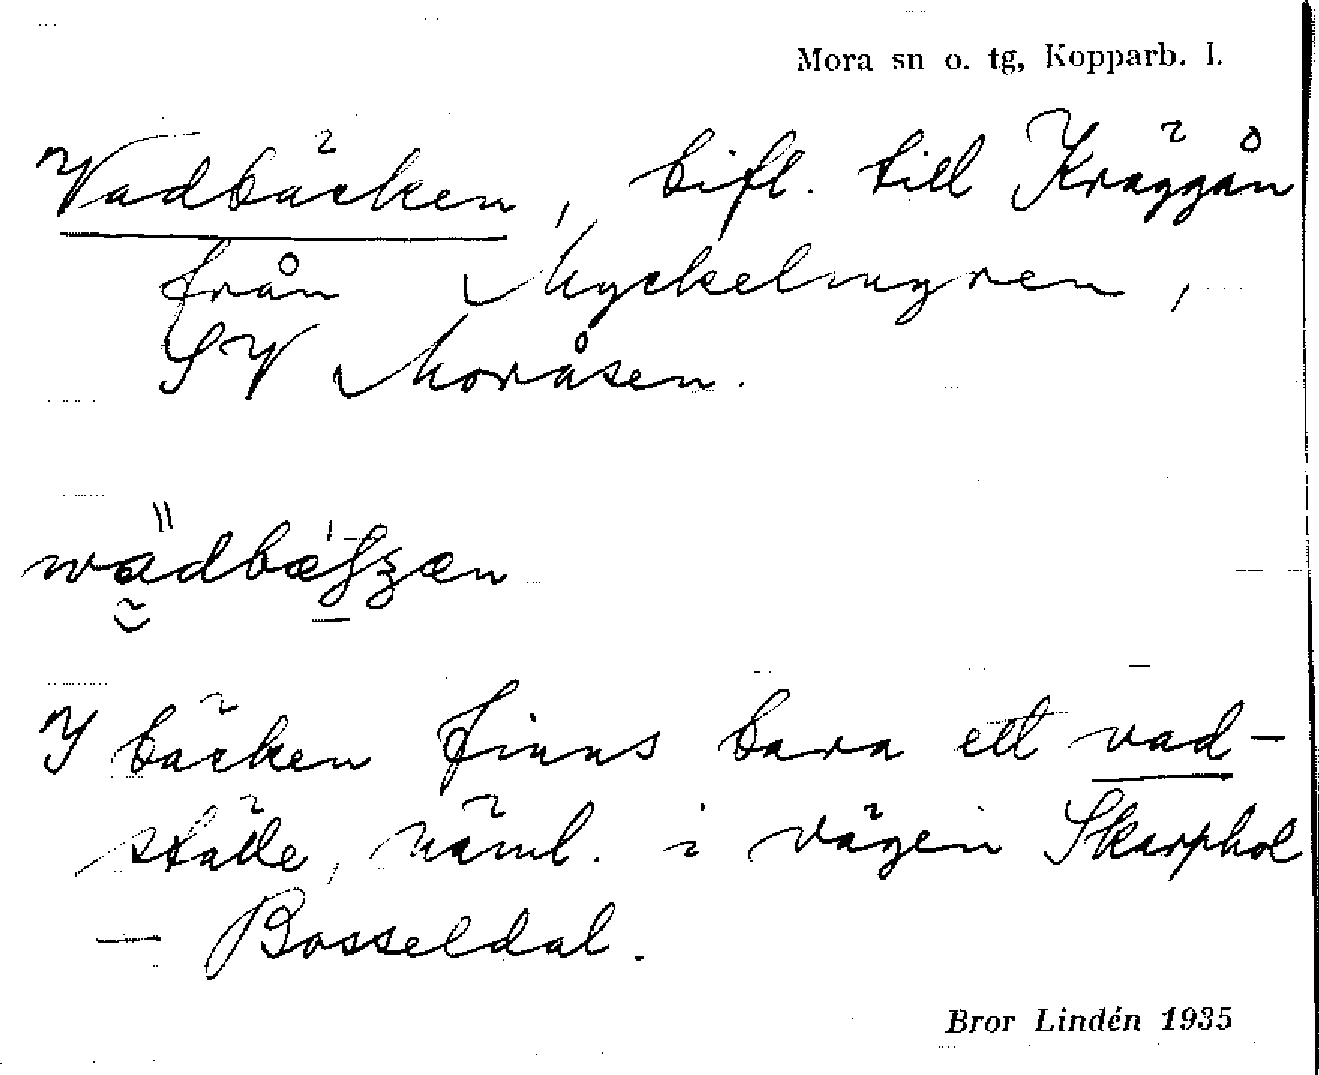 Mora sn o. tg, Kopparb. l.
Vadbäcken, bifl. till Kräggån
från Myckelmyren,
SV Moråsen.
I bäcken finns bara ett vad-
ställe, näml. i vägen Skarphol
— Bosseldal.
Bror Lindén 1935